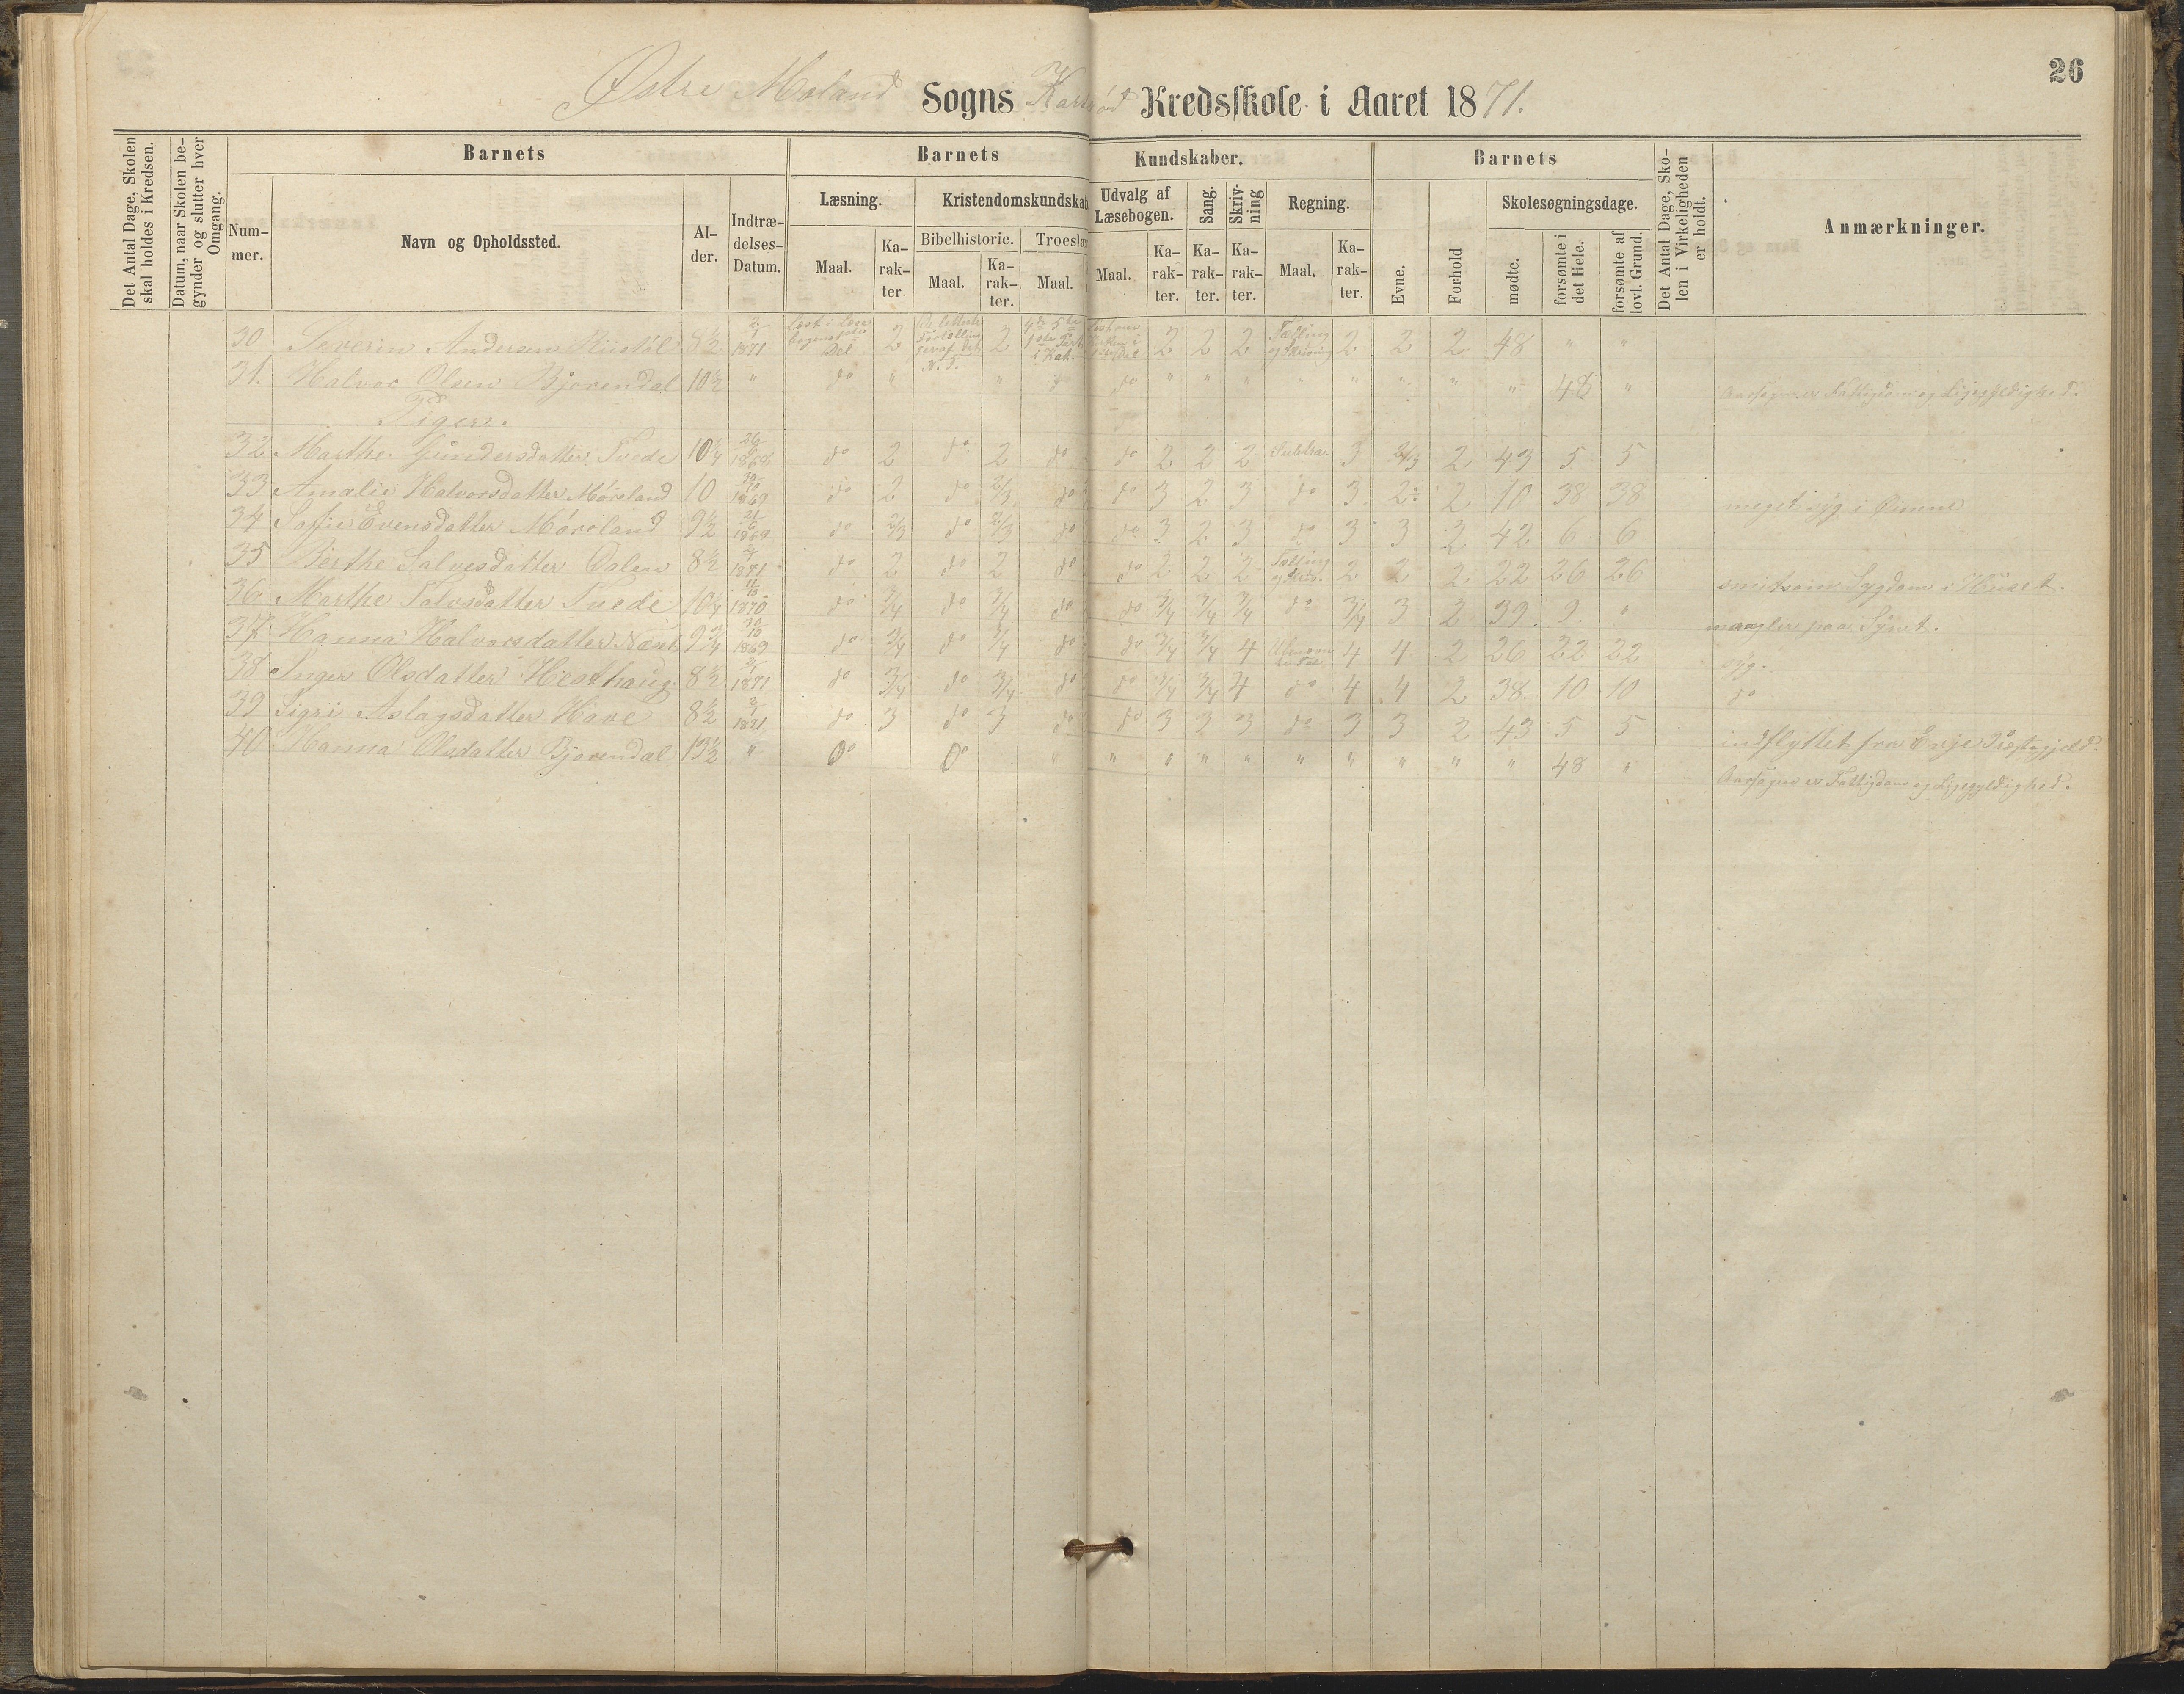 26
Østre Moland Sogns Karerød Kredsskole i Aaret 1871.
Det Antal Dage, Skolen skal holdes i Kredsen.
Datum, naar Skolen begynder og slutter hver Omgang.
Barnets
Nummer.
Navn og Opholdssted.
Alder.
Indtrædelses-Datum.
Barnets Kundskaber.
Læsning.
Maal.
Karakter.
Kristendomskundskab
Bibelhistorie.
Maal.
Karakter.
Troeslæ
Maal.
Udvalg af Læsebogen.
Maal.
Karakter.
Sang.
Karakter.
Skrivning
Karakter.
Regning.
Maal.
Karakter.
Barnets
Evne.
Forhold
Skolesøgningsdage.
mødte.
forsømte i det Hele.
forsømte af lovl. Grund.
Det Antal Dage, Skolen i Virkeligheden er holdt.
Anmærkninger.
30 Severin Andersen 8½ 2/1 1871 Del 2 2 2 2 2 Tælling og Skrivning 2 2 2 48 " "
31. Halvor Olsen Bjorendal 10½ " do " " do " " " " " " " " 48 " Aarsagen er Fattigdom og Ligegyldighed.
Piger.
32 Marthe Gundersdatter Tvede 10¼ 1868 do 2 do 2 do do 2 2 2 Subtra. 3 2/3 2 43 5 5
33 Amalie Halvorsdatter Møreland 10 1869 do 2 do 2/3 do do 3 2 3 do 3 2 2 10 38 38 meget syg i Øinene
34 Sofie Evensdatter Møreland 9½ 21/6 1869 do 2/3 do 2/3 do do 3 2 3 do 3 3 2 42 6 6
35 Berthe Salvesdatter Dalen 8½ 1871 do 2 do 2 do do 2 2 2 Tælling og Skriv. 2 2 2 22 26 26 smitsom Sygdom i Huset.
36. Marthe Talvsdatter Tvede 10¼ 1870 do 3/4 do 3/4 do do 3/4 3/4 3/4 do 3/4 3 2 39. 9. " mangler paa Synet.
37 Hanna Halvorsdatter 9¾ 10/10 1869 do 3/4 do 3/4 do do 3/4 3/4 4 4 4 2 26 22 22 syg.
38 Inger Olsdatter Hesthaug 8½ 2/1 1871 do 3/4 do 3/4 do do 3/4 3/4 4 do 4 4 2 38. 10 10 do
39 Sigri Aslagsdatter Have 8½ 2/1 1871 do 3 do 3 do do 3 3 3 do 3 3 2 43 5 5 indflyttet fra Præstegjeld.
40 Hanna Olsdatter Bjorendal 13½ " 0 0 " " " " " " " " " " 48 " Aarsagen er Fattigdom og Ligegyldighed.